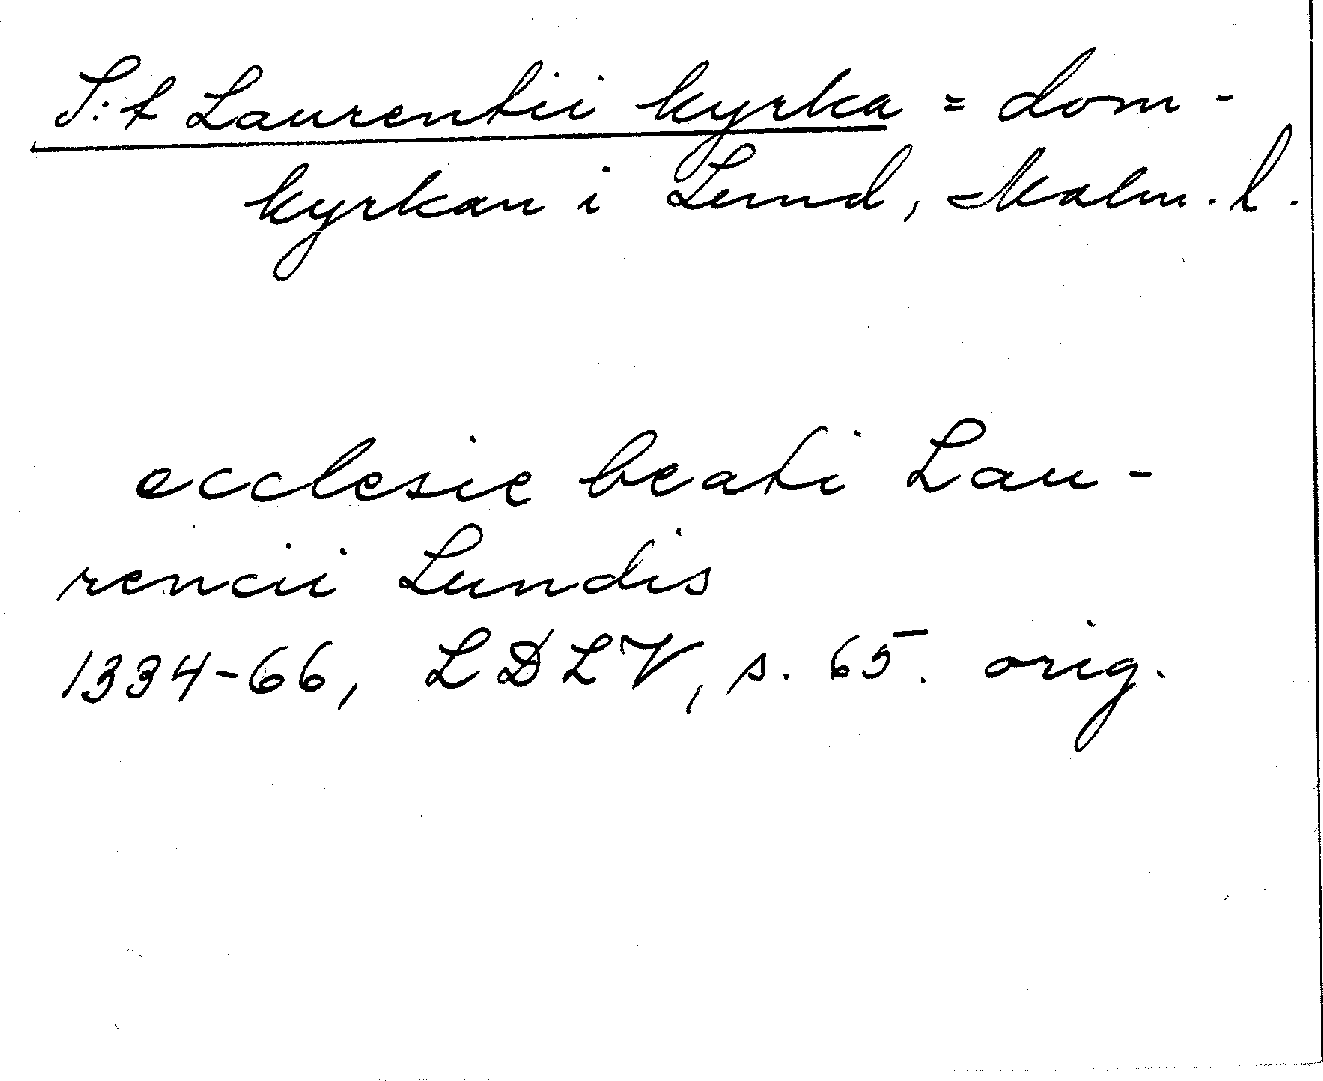 S:t Laurentii kyrka = dom-
kyrkan i Lund, Malm. l.
ecclesie beati Lau-
rencii Lundis
1334-66, LDLV, s. 65. orig.